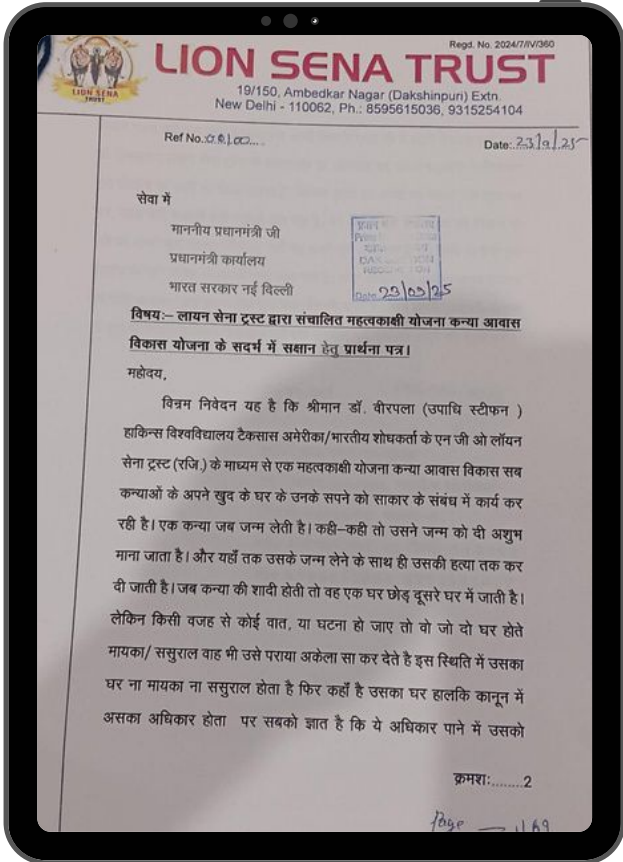 Regd. No. 2024/7/IV/360
LION SENA TRUST
LION SENA
TRUST
19/150, Ambedkar Nagar (Dakshinpuri) Extn.
New Delhi - 110062, Ph.: 8595615036, 9315254104
Ref No.:
Date:.23/9/.25
सेवा में
माननीय प्रधानमंत्री जी
प्रधानमंत्री कार्यालय
भारत सरकार नई दिल्ली
Date 23/09/25
विषयः– लायन सेना ट्रस्ट द्वारा संचालित महत्वकाक्षी योजना कन्या आवास
विकास योजना के सदर्भ में सक्षान हेतु प्रार्थना पत्र।
महोदय,
विन्रम निवेदन यह है कि श्रीमान डॉ. वीरपला (उपाधि स्टीफन )
हाकिन्स विश्वविद्यालय टैकसास अमेरीका/भारतीय शोधकर्ता के एन जी ओ लॉयन
सेना ट्रस्ट (रजि.) के माध्यम से एक महत्वकाक्षी योजना कन्या आवास विकास सब
कन्याओं के अपने खुद के घर के उनके सपने को साकार के संबंध में कार्य कर
रही है। एक कन्या जब जन्म लेती है। कही–कही तो उसने जन्म को दी अशुभ
माना जाता है। और यहाँ तक उसके जन्म लेने के साथ ही उसकी हत्या तक कर
दी जाती है। जब कन्या की शादी होती तो वह एक घर छोड़ दूसरे घर में जाती है।
लेकिन किसी वजह से कोई वात, या घटना हो जाए तो वो जो दो घर होते
मायका/ ससुराल वाह भी उसे पराया अकेला सा कर देते है इस स्थिति में उसका
घर ना मायका ना ससुराल होता है फिर कहाँ है उसका घर हालकि कानून में
असका अधिकार होता पर सबको ज्ञात है कि ये अधिकार पाने में उसको
क्रमशः........2
Page